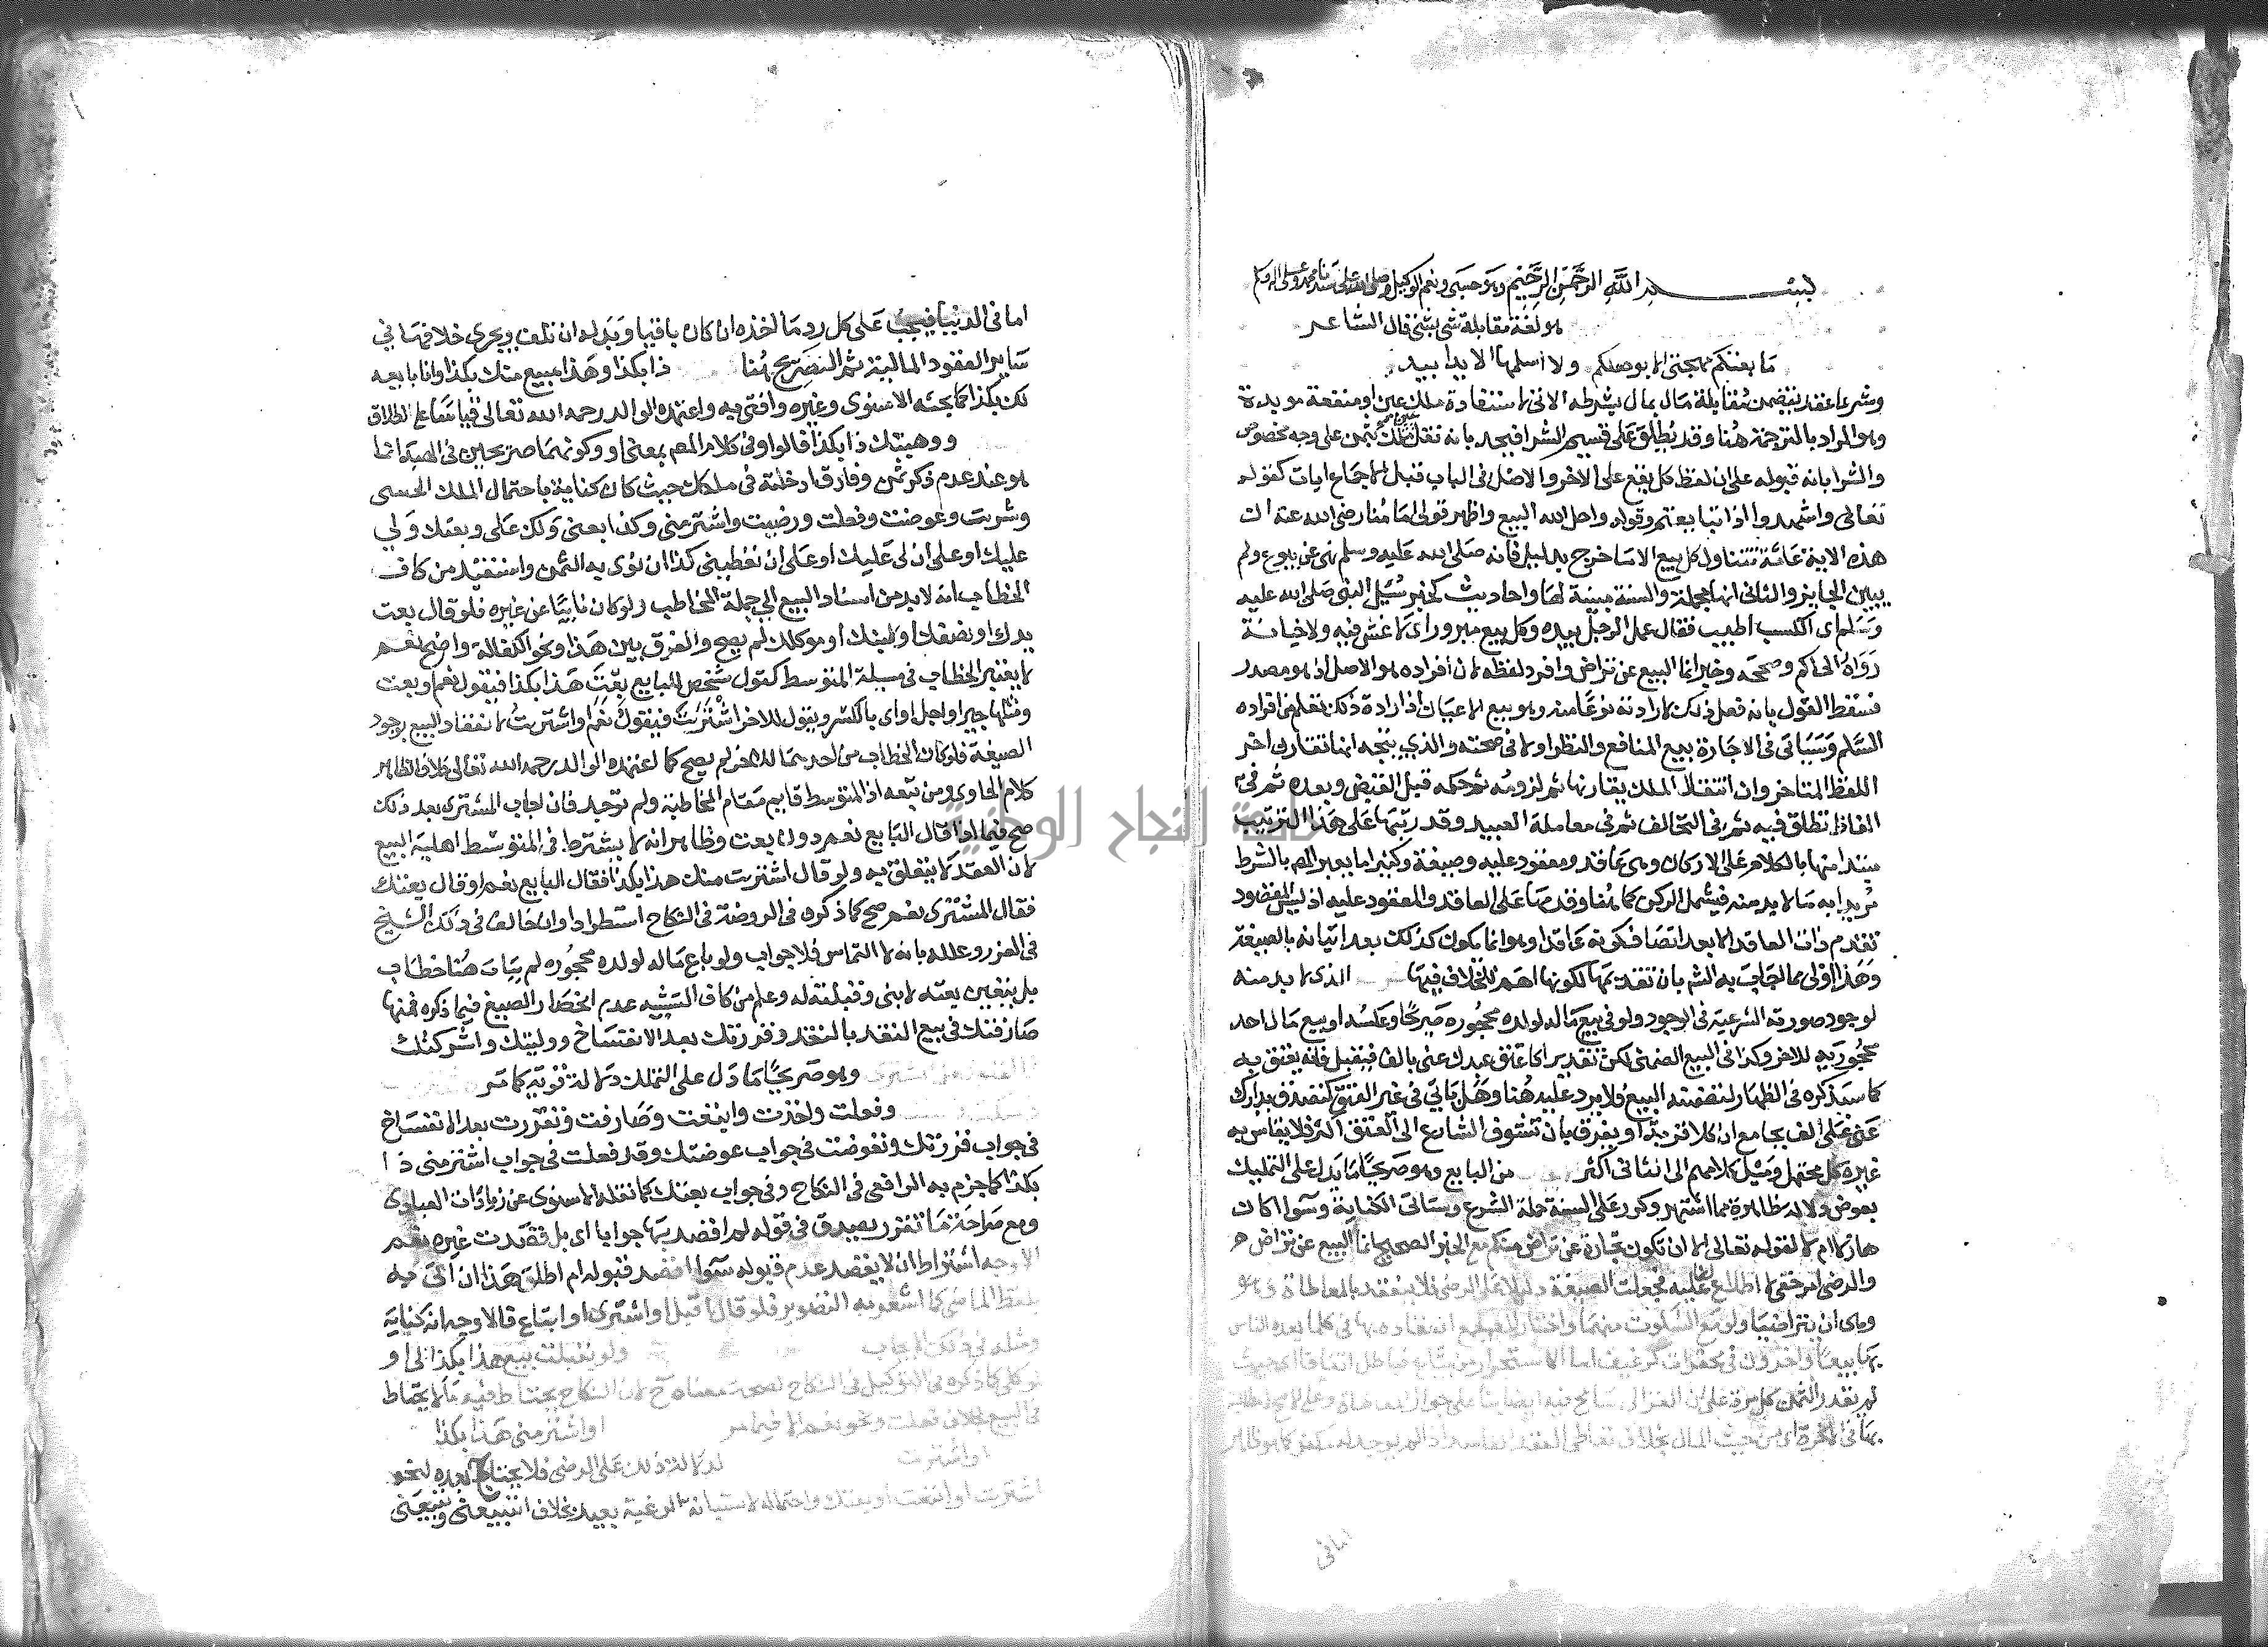 بسم الله الرحمن الرحيم وهو حسبي ونعم الوكيل وصلى الله على سيدنا محمد وعلى اله وسلم
هو لغة مقابلة شي بشي قال الشاعر
ما بعتكم مهجتي الا بوصلكم ولا اسلمها الا يدا بيد
وشرعا عقد يتضمن مقابلة مال بمال بشرطه الاتي لاستفادة ملك عين او منفعة موبدة
وهو المراد بالترجمة هنا وقد يطلق على قسيم الشرا فيحد بانه نقل ملك بثمن على وجه مخصوص
والشرا بانه قبوله على ان لفظ كل يقع على الاخر والاصل في الباب قبل الاجماع ايات كقوله
تعالى واشهدوا اذا تبايعتم وقوله واحل الله البيع واظهر قولي امامنا رضي الله عنه ان
هذه الاية عامة تتناول كل بيع الا ما خرج بدليل فانه صلى الله عليه وسلم نهى عن بيوع ولم
يبين الجايز والثاني انها مجملة والسنة مبينة لها واحاديث كخبر سيل النبي صلى الله عليه
وسلم اي الكسب اطيب فقال عمل الرجل بيده وكل بيع مبرور اي لا غش فيه ولا خيانة
رواه الحاكم وصححه وخبر انما البيع عن تراض وافرد لفظه لان افراده هو الاصل اذ هو مصدر
فسقط القول بانه فعل ذلك لارادته نوعا منه وهو بيع الاعيان اذ ارادة ذلك تعلم من افراده
السلم وسياتي في الاجارة بيع المنافع والنظر اولا في صحته والذي يتجه انها تقارن اخر
اللفظ المتاخر وان انتقال الملك يقارنها ثم لزومه ثم حكمه قبل القبض وبعده ثم في
الفاظ تطلق فيه ثم في التحالف ثم في معاملة العبيد وقد رتبها على هذا الترتيب
مبتدا منها بالكلام على الاركان وهي عاقد ومعقود عليه وصيغة وكثيرا ما يعبر المص بالشرط
مريدا به ما لا بد منه فيشمل الركن كما هنا وقدمها على العاقد والمعقود عليه اذ ليس المقصود
تقدم ذات العاقد الا بعد اتصافه بكونه عاقدا وهو انما يكون كذلك بعد اتيانه بالصيغة
وهذا اولى مما اجاب به الشم بان تقديمها لكونها اهم للخلاف فيها الذي لا بد منه
لوجود صورته الشرعية في الوجود ولو في بيع ماله لولده محجوره صريحا وعكسه او بيع مال احد
محجوريه للاخر وكذا في البيع الضمني لكن تقديرا كاعتق عبدك عني بالف فيقبل فانه يعتق به
كما سيذكره في الظهار لتضمنه البيع فلا يرد عليه هنا وهل ياتي في غير العتق كتصدق بدارك
عني على الف بجامع ان كلا قربة او يفرق بان تشوف الشارع الى العتق اكثر فلا يقاس به
غيره كل محتمل وميل كلامهم الى الثاني اكثر من البايع وهو صريحا ما يدل على التمليك
بعوض دلالة ظاهرة مما اشتهر وكرر على السنة حملة الشرع وستاتي الكناية وسوا اكان
هازلا ام لا لقوله تعالى الا ان تكون تجارة عن تراض منكم مع الخبر الصحيح انما البيع عن تراض
والرضى امر خفي لا اطلاع لنا عليه فجعلت الصيغة دليلا على الرضى فلا ينعقد بالمعاطاة
وهي ان يتراضيا ولو مع السكوت منهما واختار المص انعقاده بها في كل ما يعده الناس
بها بيعا واخرون في محقرات كرغيف اما الاستجرار من بياع فباطل اتفاقا اي حيث
لم يقدر الثمن كل مرة على ان الغزالي سامح فيه ايضا بنا على جواز المعاطاة وعلى الاصح لا مطالبة
بها في الاخرة اي من حيث المال بخلاف تعاطي العقد الفاسد اذا لم يوجد له مكفر كما هو ظاهر
اما في
اما في الدنيا فيجب على كل رد ما اخذه ان كان باقيا وبدله ان تلف ويجري خلافها في
ساير العقود المالية ثم الصريح هنا ذا بكذا وهذا مبيع منك بكذا وانا بايعه
لك بكذا كما بحثه الاسنوي وغيره وافتى به واعتمده الوالد رحمه الله تعالى قياسا على الطلاق
ووهبتك ذا بكذا قالوا وفي كلام المص بمعنى او وكونهما صريحين في الهبة انما
هو عند عدم ذكر ثمن وفارق ادخلته في ملكك حيث كان كناية باحتمال الملك الحسي
وشريت وعوضت وفعلت ورضيت واشتر مني وكذا بعني ولك علي وبعتك ولي
عليك او على ان لي عليك او على ان تعطيني كذا ان نوى به الثمن واستفيد من كاف
الخطاب انه لا بد من اسناد البيع الى جملة المخاطب ولو كان نايبا عن غيره فلو قال بعت
يدك او نصفك او لابنك او موكلك لم يصح والفرق بين هذا ونحو الكفالة واضح نعم
لا يعتبر الخطاب في مسيلة المتوسط كقول شخص للبايع بعت هذا بكذا فيقول نعم او بعت
ومثلها جير او اجل او اي بالكسر ويقول للاخر اشتريت فيقول نعم او اشتريت لانعقاد البيع بوجود
الصيغة فلو كان الخطاب من احدهما للاخر لم يصح كما اعتمده الوالد رحمه الله تعالى خلافا لظاهر
كلام الحاوي ومن تبعه اذ المتوسط قايم مقام المخاطبة ولم توجد فان اجاب المشتري بعد ذلك
صح فيما اذا قال البايع نعم دون بعت وظاهر انه لا يشترط في المتوسط اهلية البيع
لان العقد لا يتعلق به ولو قال اشتريت منك هذا بكذا فقال البايع نعم او قال بعتك
فقال المشتري نعم صح كما ذكره في الروضة في النكاح استطرادا وان خالف في ذلك الشيخ
في الغرر وعلله بانه لا التماس فلا جواب ولو باع ماله لولده محجوره لم يتات هنا خطاب
بل يتعين بعته لابني وقبلته له وعلم من كاف التشبيه عدم انحصار الصيغ فيما ذكره فمنها
صارفتك في بيع النقد بالنقد وقررتك بعد الانفساخ ووليتك واشركتك
وهو صريحا ما دل على التملك دلالة قوية كما مر
وفعلت واخذت وابتعت وصارفت وتقررت بعد الانفساخ
في جواب قررتك وتعوضت في جواب عوضتك وقد فعلت في جواب اشتر مني ذا
بكذا كما جزم به الرافعي في النكاح وفي جواب بعتك كما نقله الاسنوي عن زيادات العبادي
ومع صراحة ما تقرر يصدق في قوله لم اقصد بها جوابا اي بل قصدت غيره نعم
الاوجه اشتراط ان لا يقصد عدم قبوله سوا اقصد قبوله ام اطلق هذا ان اتى به
بلفظ الماضي كما اشعر به التصوير فلو قال اقبل او اشتري او ابتاع فالاوجه انه كناية
ومثله في ذلك الايجاب ولو بقبلت بيع هذا بكذا لي او
توكلي كما ذكره في التوكيل في النكاح لصحة معناه ح لان النكاح يحتاط فيه ما لا يحتاط
في البيع بخلاف فعلت ونحو نعم الا فيما مر او اشتر مني هذا بكذا
او اشتريت لدلالة ذلك على الرضى فلا يحتاج بعده لنحو
اشتريت او ابتعت او بعتك واحتماله لاستبانة الرغبة بعيد بخلاف اتبيعني وتبيعني